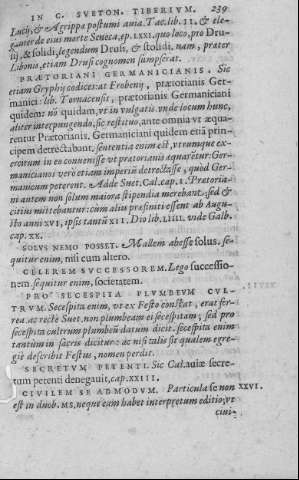 IN C. SVETON. TIBERIVM. 239
Lucij, & Agrippa postumi auia. Tac. lib. II. & ele-
ganter de eius morte Seneca, ep. LXXI. quo loco, pro Dru-
sij, & solidi, legendum Drusi, & stolidi. nam, prater
Libonis, etiam Drusi cognomen sumpserat.
PRÆTORIANI GERMANICIANIS. Sic
etiam Gryphij codices: at Frobenij, prætorianis Ger-
manici: lib. Tornacensis, prætorianis Germaniciani
quidem: nō quidam, vt in vulgatis. vnde locum hunc,
aliter interpungendo, sic restituo, ante omnia vt æqua-
rentur Prætorianis. Germaniciani quidem etiā prin-
cipem detrectabant. sententia enim est, vtrumque ex-
ercitum in eo conuenisse vt pratorianis aquaretur: Ger-
manicianos verò etiam imperiū detrectasse, quòd Ger-
manicum peterent. Adde Suet. Cal. cap. I. Pratoria-
ni autem non solum maiora stipendia merebant, sed &
citius mittebantur: cùm alius prafiniti essent ab Augu-
sto anni XVI, ipsis tantū XII. Dio lib. LIIII. vide Galb.
cap. XX.
SOLVS NEMO POSSET. Mallem abesse solus. se-
quitur enim, nisi cum altero.
CELEREM SVCCESSOREM. Lego successio-
nem. sequitur enim, societatem.
PRO SECESPITA PLVMBEVM CVL-
TRVM. Secespita enim, vt ex Festo constat, erat fer-
rea. at recte Suet. non plumbeam ei secespitam, sed pro
secespita cultrum plumbeū datum dicit. secespita enim
tantùm in sacris dicitur: ac nisi talis sit qualem egre-
giè describit Festus, nomen perdit.
SECRETVM PETENTI. Sic Cal. auiæ secre-
tum petenti denegauit, cap. XXIII.
CIVILEM SE ADMODVM. Particula se non XXVI.
est in duob. MS. neque eam habet interpretum editio, vt
ciui-